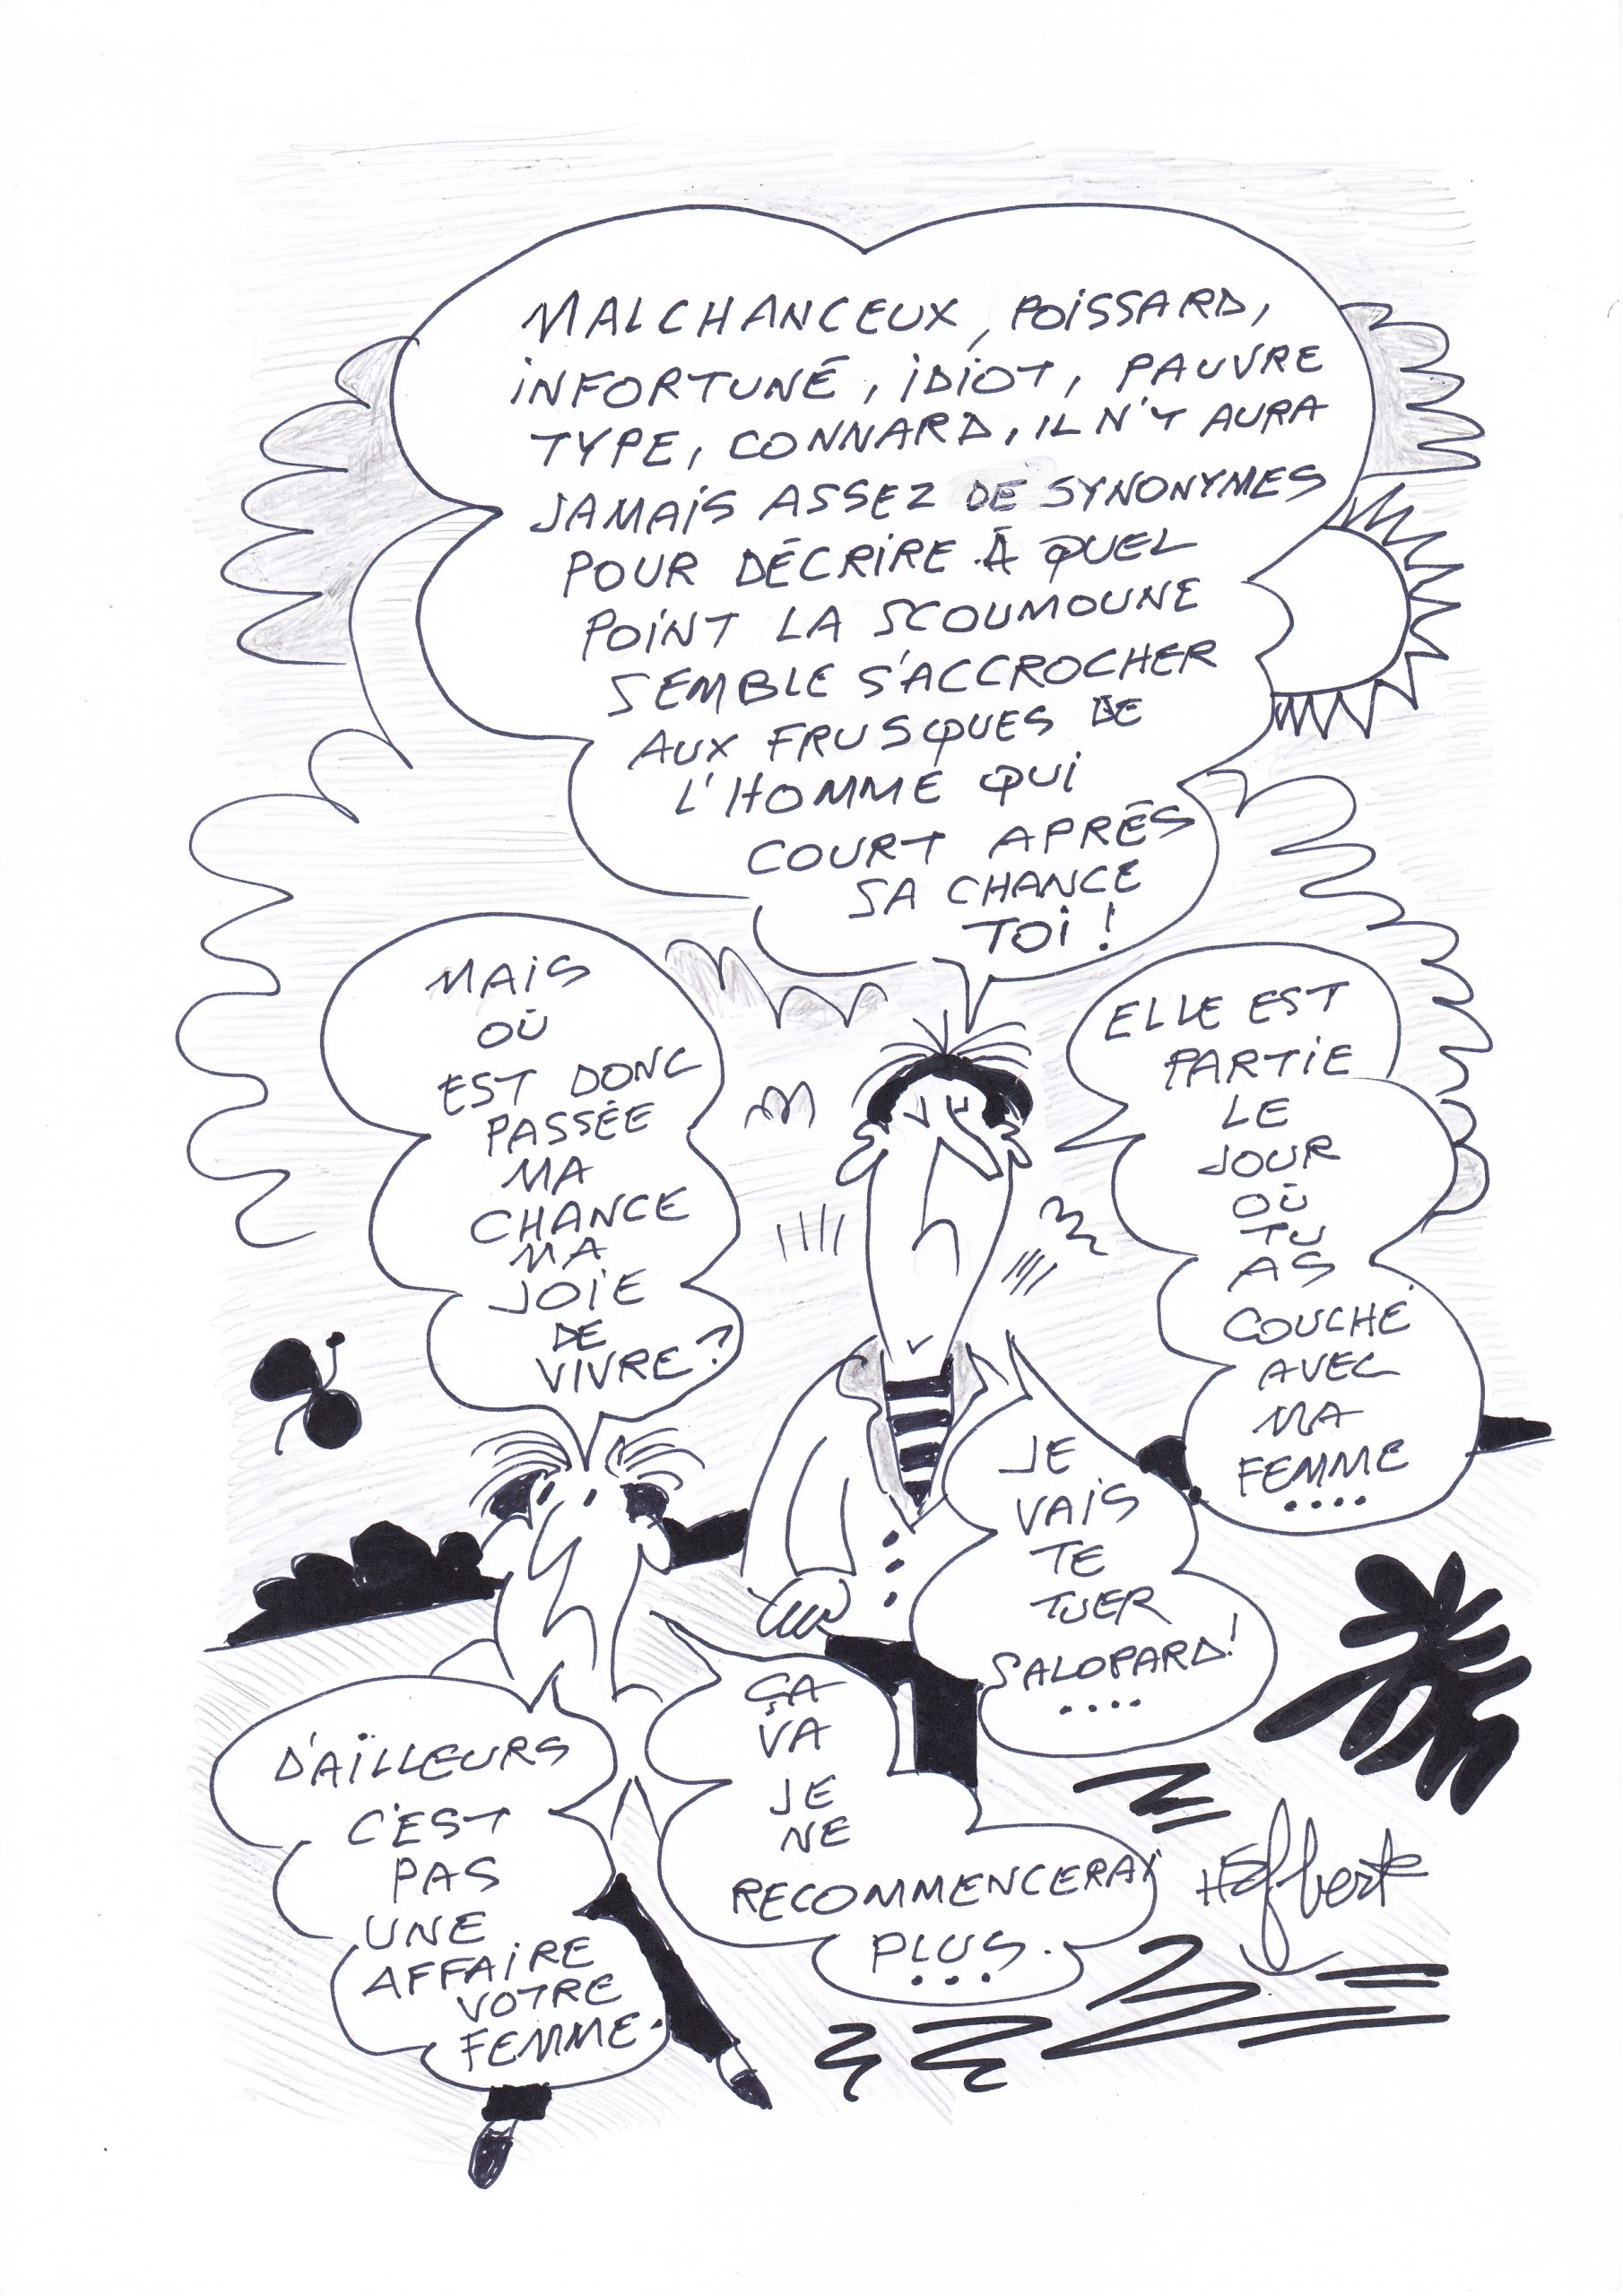 MALCHANCEUX, POISSARD,
INFORTUNÉ, IDIOT, PAUVRE
TYPE, CONNARD, IL N'Y AURA
JAMAIS ASSEZ DE SYNONYMES
POUR DÉCRIRE À QUEL
POINT LA SCOUMOUNE
SEMBLE S'ACCROCHER
AUX FRUSQUES DE
L'HOMME QUI
COURT APRÈS
SA CHANCE
TOI !
MAIS
OÙ
EST DONC
PASSÉE
MA
CHANCE
MA
JOIE
DE
VIVRE ?
ELLE EST
PARTIE
LE
JOUR
OÙ
TU
AS
COUCHÉ
AVEC
MA
FEMME
....
JE
VAIS
TE
TUER
SALOPARD !
....
D'AÏLLEURS
C'EST
PAS
UNE
AFFAIRE
VOTRE
FEMME.
ÇA
VA
JE
NE
RECOMMENCERAI
PLUS.
...